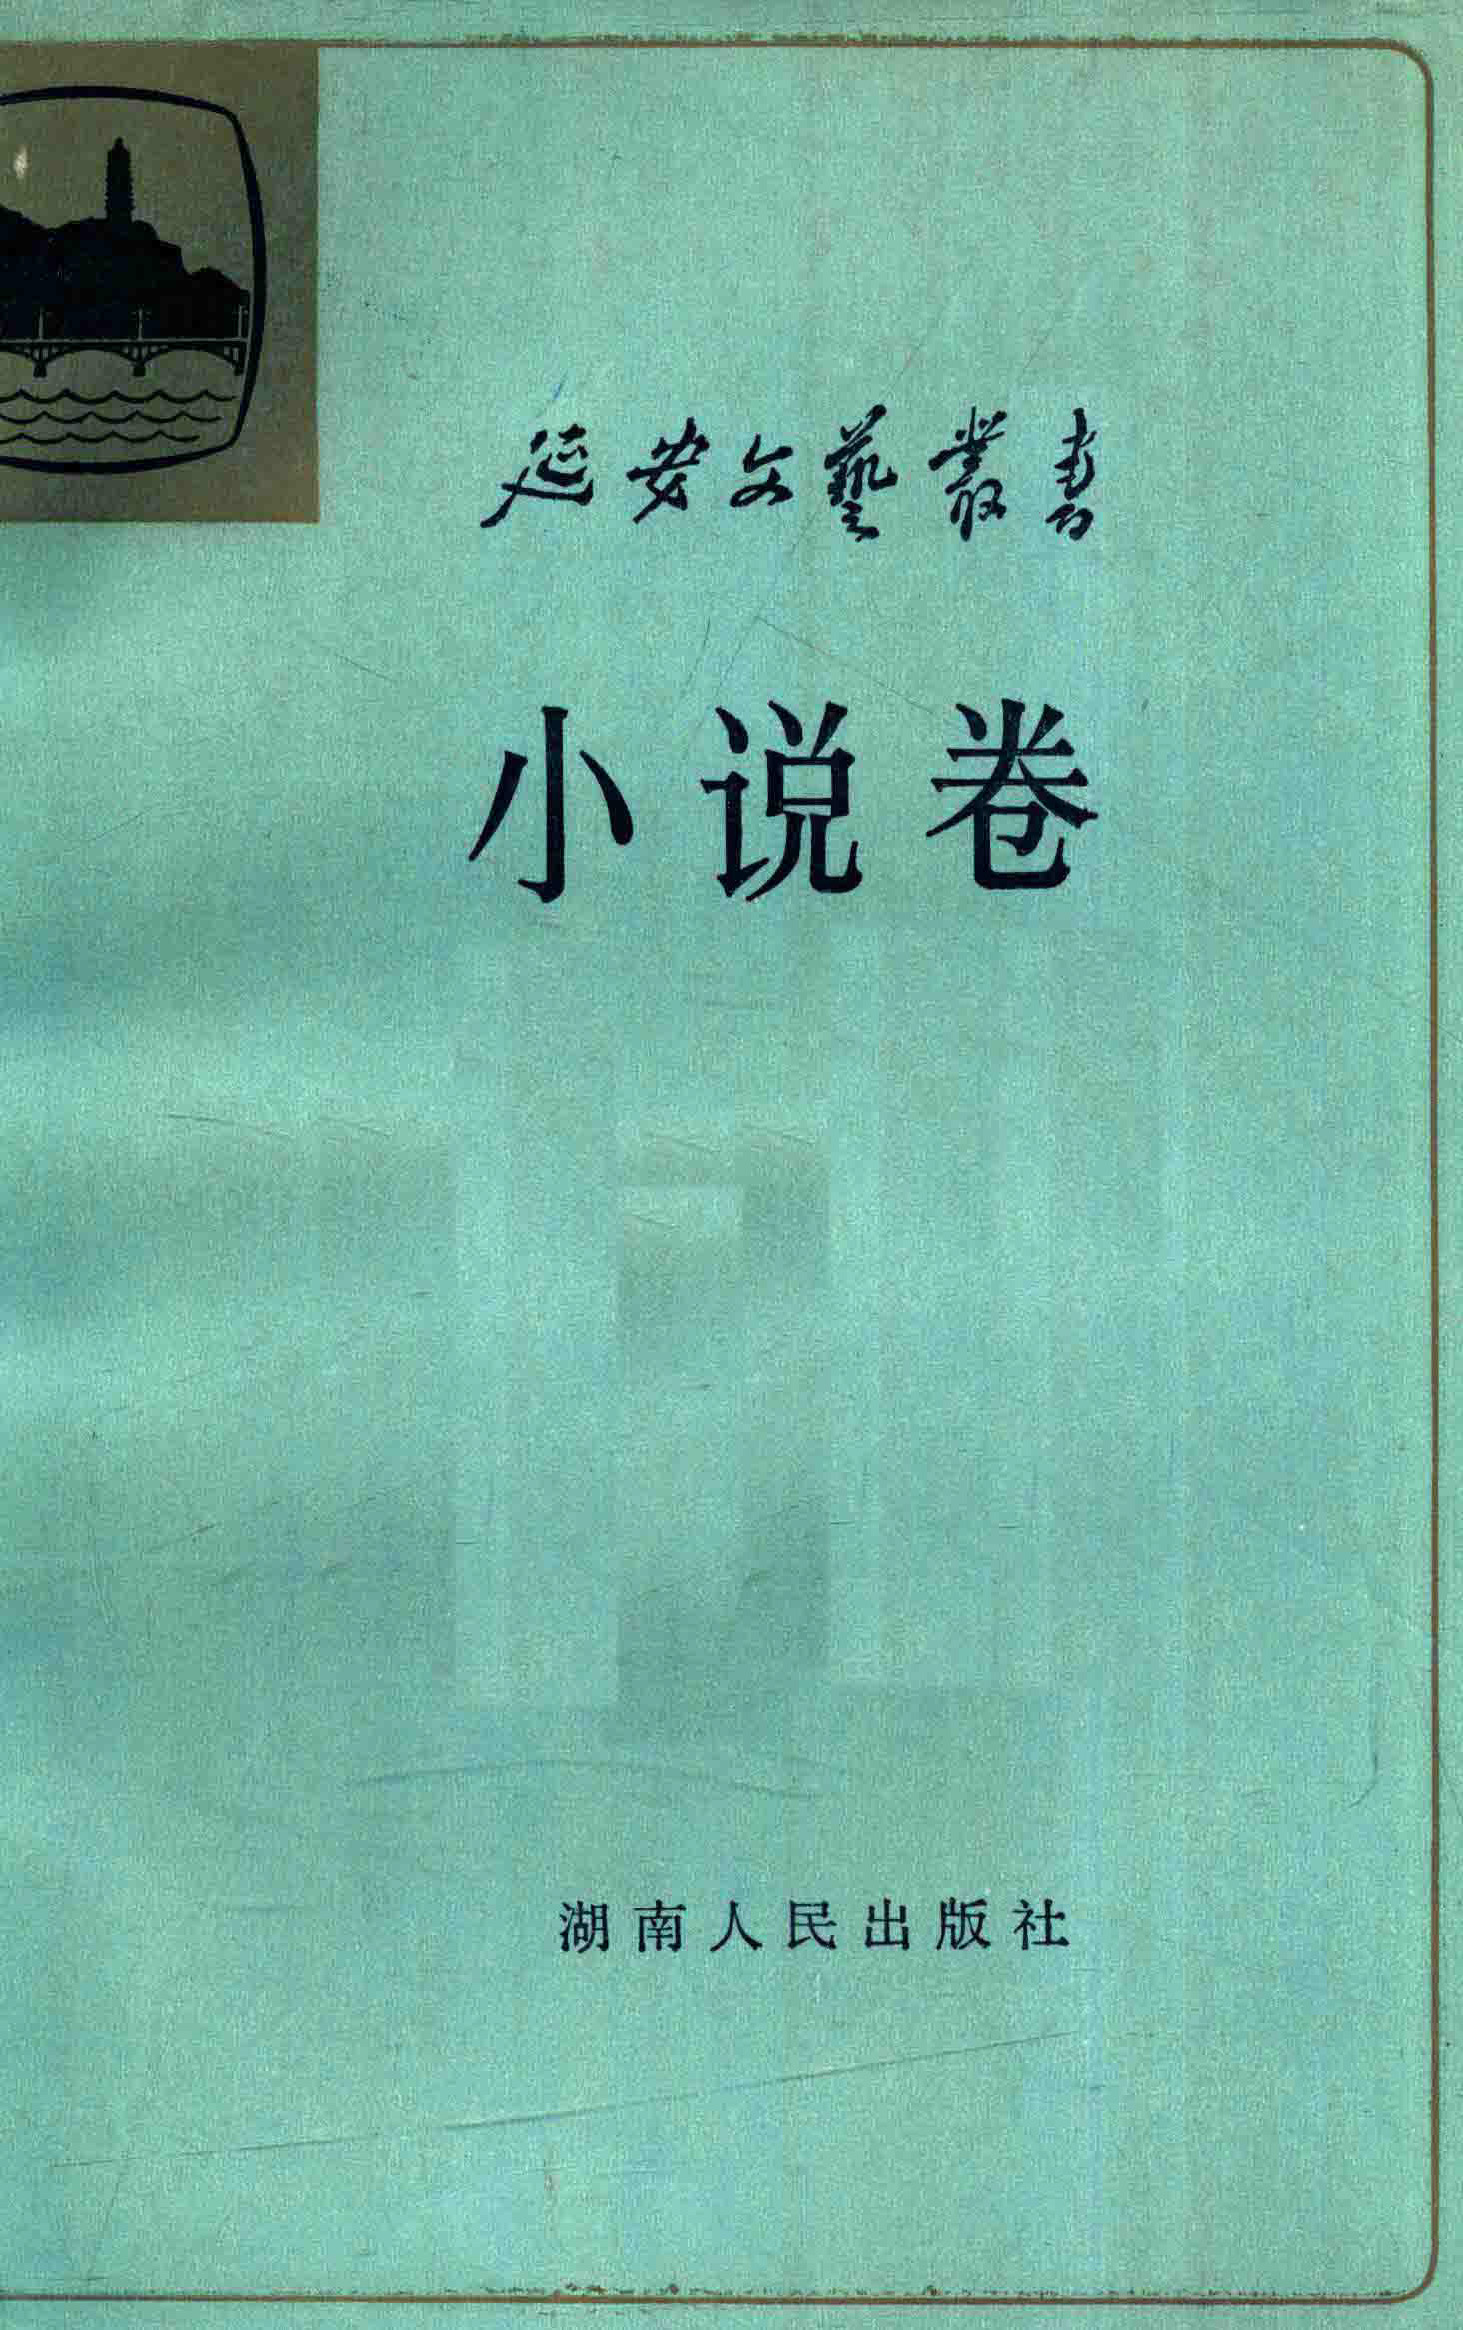 延安文藝叢書
小说卷
湖南人民出版社